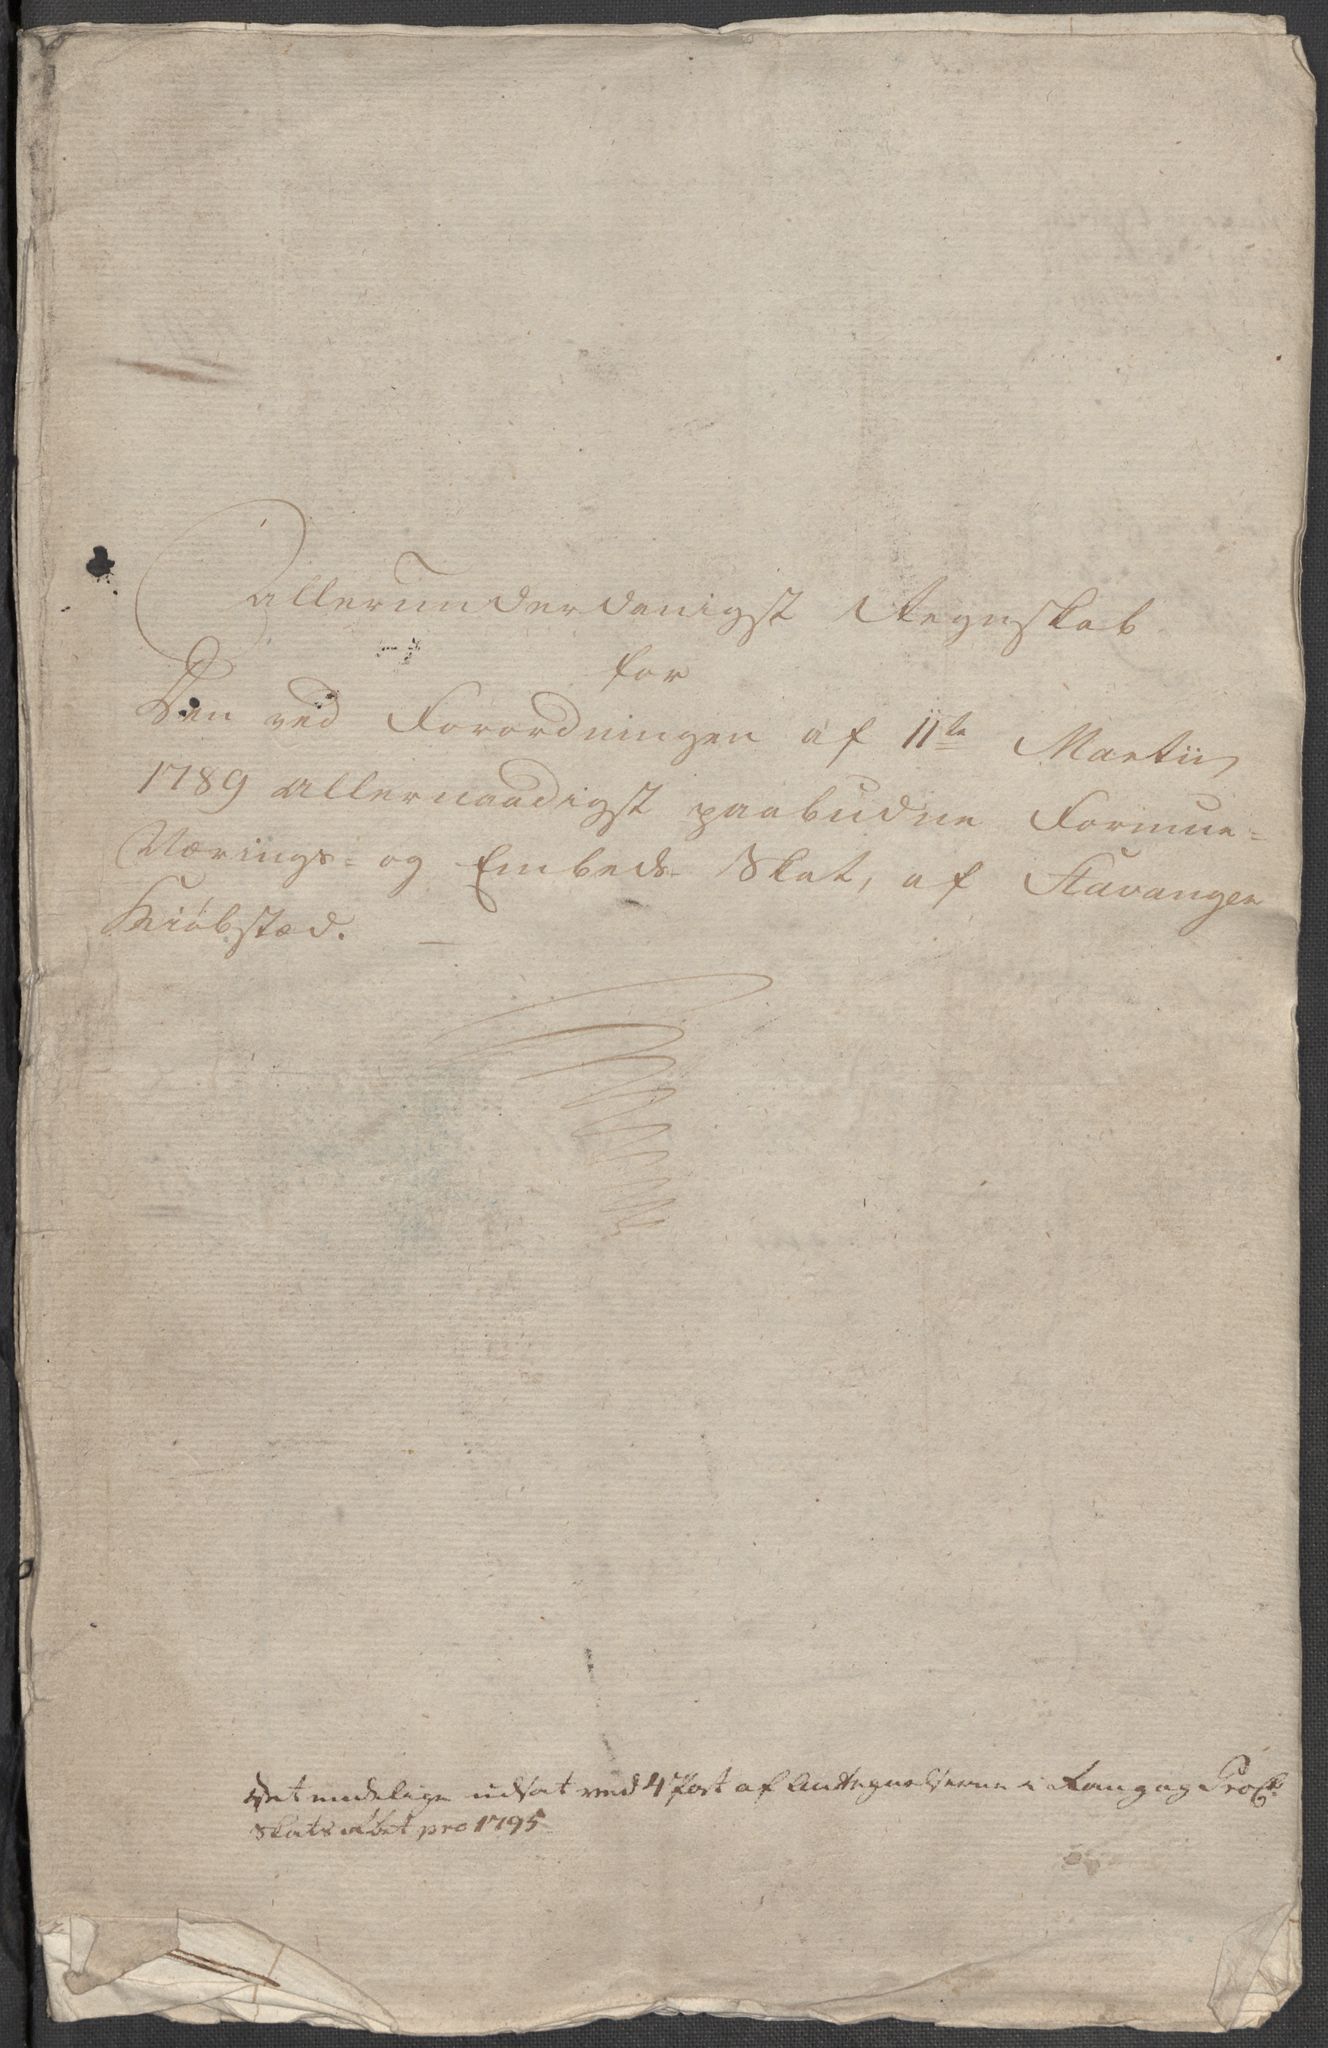 Allerunderdanigst Regnskab
for
Den ved Forordningen af 11te Martii
1789 allernaadigst paabudne Formue-
Nærings- og Embeds- Skat, af Stavanger
Kiøbstæd.
Det endelige udsat ved 4 Post af Antegnelserne i Rang og Proct
Skats  pro 1795